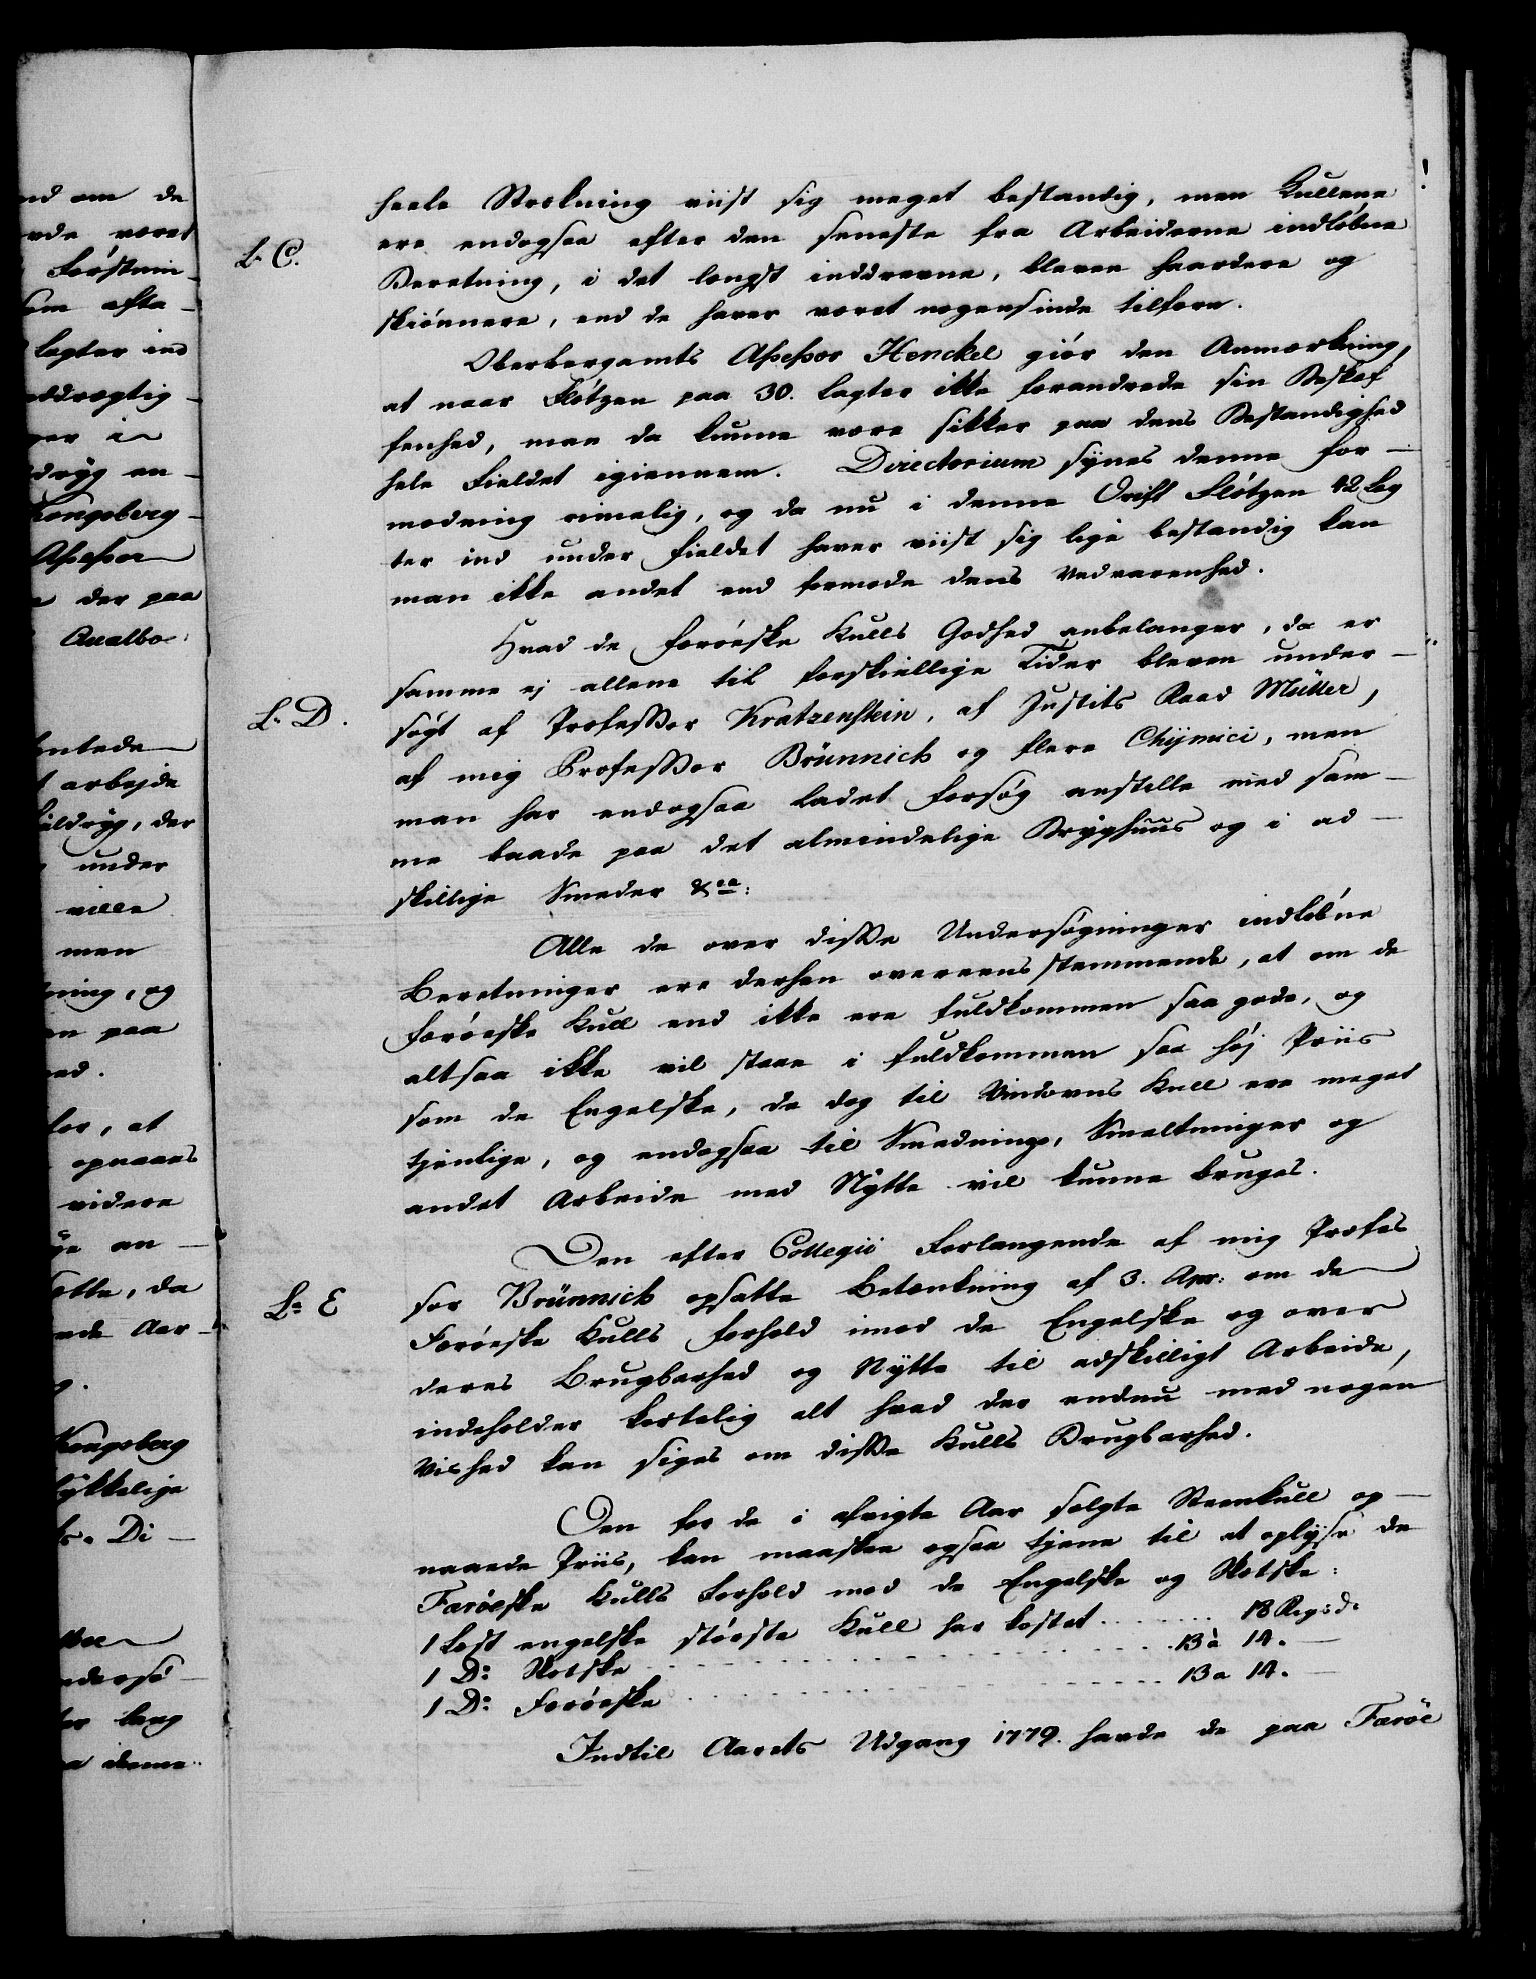 heele Strækning viist sig meget bestandig, men Kullene
L. C.
ere endogsaa efter den seneste fra Arbeiderne indløbne
Beretning, i det længst inddrevne, bleven haardere og
skiønnere, end de haver været nogensinde tilforn.
Oberbergamts Assessor Henckel giør den Anmærkning,
at naar Fløtzen paa 30. Lagter ikke forandrede sin Beskaf
fenhed, man da kunne være sikker paa dens Bestandighed
hele Fieldet igiennem. Directorium synes denne For-
modning rimelig, og da nu i denne Drift Fløtzen 42 Lag
ter ind under Fieldet haver viist sig lige bestandig kan
man ikke andet end formode dens Vedvarenhed.
Hvad de Færøeske Kulls Godhed anbelanger, da er
samme ej allene til forskiellige Tider bleven under-
L. D.
søgt af Professor Kratzenstein, af Justits Raad Müller,
af mig Professor Brünnich og flere Chijmici, men
man har endogsaa ladet Forsøg anstille med sam-
me baade paa det almindelige Bryghuus og i ad-
skillige Smeder &ca:
Alle de over disse Undersøgninger indløbne
Beretninger ere derhen overeensstemmende, at om de
Færøeske Kull end ikke ere fuldkommen saa gode, og
altsaa ikke vil staae i fuldkommen saa høj Priis
som de Engelske, de dog til Vindovns Kull ere meget
tjenlige, og endogsaa til Smednings, Smeltninger og
andet Arbeide med Nytte vil kunne bruges.
Den efter Collegii Forlangende af mig Profes
Lr E
sor Brünnich opsatte Betænkning af 3. Apr: om de
Færøeske Kulls Forhold imod de Engelske og over
deres Brugbarhed og Nytte til adskilligt Arbeide,
indeholder kortelig alt hvad der endnu med nogen
Vished kan siges om disse Kulls Brugbarhed.
Den for de i afvigte Aar solgte Steenkull op-
naaede Priis, kan maaskee ogsaa tjene til at oplyse de
Færøeske Kulls Forhold mod de Engelske og Skotske:
1 Læst engelske største Kull har kostet ....... 18 Rigsd.
1 Do Skotske ....... 13 à 14. —
1 Do Færøeske ....... 13 a 14. —
Indtil Aarets Udgang 1779. havde de paa Færøe